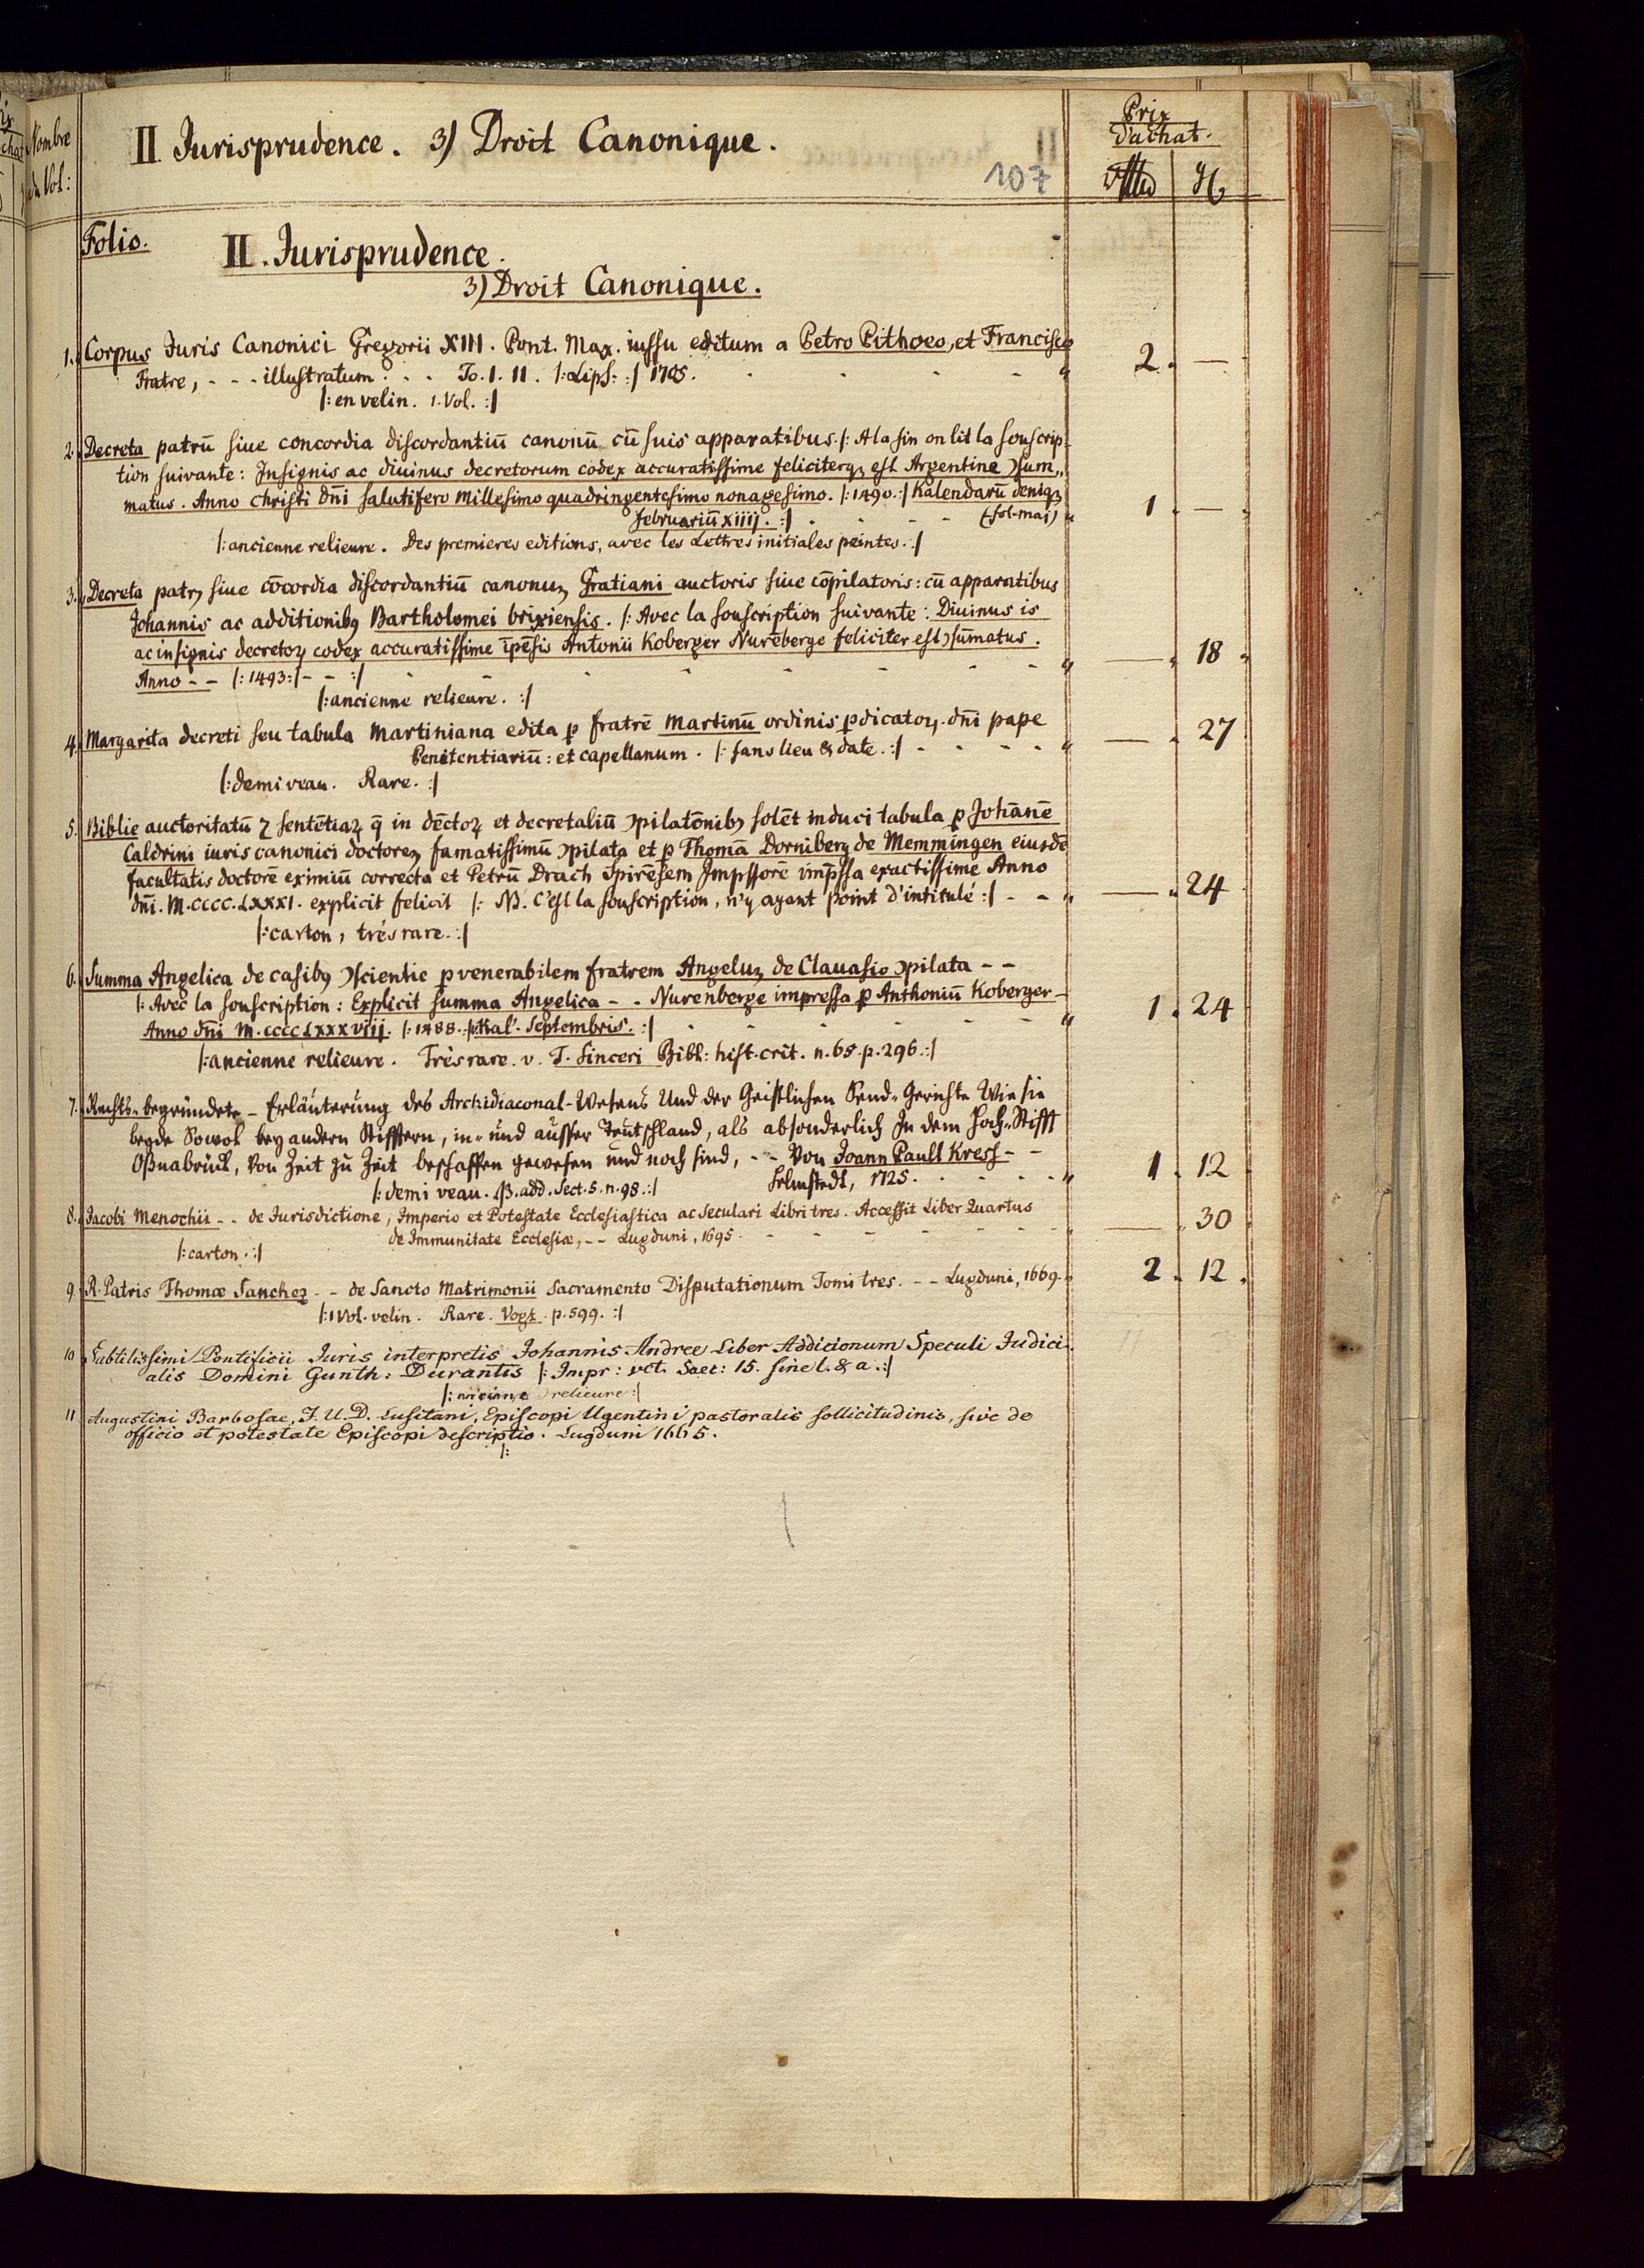 Nombre
du Vol:
II Jurisprudence. 3) Droit Canonique.
107
Prix
d'achat.
Folio.
II. Jurisprudence.
3) Droit Canonique.
1. Corpus Juris Canonici Gregorii XIII. Pont. Max. iussu editum a Petro Pithoeo, et Francisco
Fratre, - - - illustratum. . . To. I. II. |: Lips: :| 1705. 2. —
|: en velin. 1. Vol. :|
2. Decreta patrū siue concordia discordantiū canonū cū suis apparatibus. |: A la fin on lit la souscrip-
tion suivante: Insignis ac diuinus decretorum codex accuratissime feliciterqʒ est Argentine ↄsum„
matus. Anno christi dn̄i salutifero millesimo quadringentesimo nonagesimo. |: 1490. :| Kalendarū deniqʒ
februariū xiiij. :| (fol. maj) 1. —
|: ancienne relieure. Des premieres editions, avec les Lettres initiales peintes. :|
3. Decreta patrꝫ siue cōcordia discordantiū canonuꝫ Gratiani auctoris siue cōpilatoris: cū apparatibus
Johannis ac additionibꝰ Bartholomei brixiensis. |: Avec la souscription suivante: Diuinus is
ac insignis decretoꝝ codex accuratissime īpēsis Antonii Koberger Nurēberge feliciter est ↄsūmatus.
Anno - - |: 1493 :| - - :| — 18
|: ancienne relieure. :|
4. Margarita decreti seu tabula Martiniana edita ꝑ fratrē Martinū ordinis p̄dicatoꝝ. dn̄i pape
Penitentiariū: et capellanum. |: sans lieu & date. :| - - - - — 27
|: demi veau. Rare. :|
5. Biblie auctoritatū ⁊ sentētiaꝝ q̄ in dēctoꝝ et decretaliū ↄpilatōnibꝰ solēt induci tabula ꝑ Johānē
Caldrini iuris canonici doctoreꝫ famatissimū ↄpilata et ꝑ Thomā Dorniberg de Memmingen eiusdē
facultatis doctorē eximiū correcta et Petrū Drach Spirēsem Jmpssorē imp̄ssa exactissime Anno
dn̄i. M. CCCC. LXXXI. explicit felicit |: NB. C'est la souscription, n'y ayant point d'intitulé :| - - — 24
|: carton, très rare. :|
6. Summa Angelica de casibꝰ ↄscientie ꝑ venerabilem fratrem Angeluꝫ de Clauasio ↄpilata - -
|: Avec la souscription: Explicit summa Angelica - - Nurenberge impressa ꝑ Anthoniū Koberger -
Anno dn̄i M. CCCC LXXXVIIJ. |: 1488. :| Kal'. Septembris. :| 1. 24
|: ancienne relieure. Très rare. v. T. Sinceri Bibl: hist. crit. n. 65. p. 296. :|
7. Rechts-begründete - Erläuterung des Archidiaconal-Wesens Und der Geistlichen Send-Gerichte Wie sie
beyde Sowol bey andern Stifftern, in- und ausser Teutschland, als absonderlich Jn dem Hoch-Stifft
Oßnabrück, Von Zeit zu Zeit beschaffen gewesen und noch sind, - - Von Joann Paull Kress - -
Helmstedt, 1725. 1. 12
|: demi veau. add. Sect. 5. n. 98. :|
8. Jacobi Menochii - - de Jurisdictione, Imperio et Potestate Ecclesiastica ac Seculari Libri tres. Accessit Liber Quartus
de Immunitate Ecclesiæ, - - Lugduni, 1695. — 30
|: carton. :|
9. R. Patris Thomæ Sanchez - - de Sancto Matrimonii Sacramento Disputationum Tomi tres. - - Lugduni, 1669. 2. 12.
|: 1 Vol. velin. Rare. Vogt. p. 599. :|
10. Subtilissimi Pontificii Juris interpretis Johannis Andree Liber Addicionum Speculi Judici-
alis Domini Gunth: Durantis |: Impr: vet. Saec: 15. sine l. & a. :|
|: ancienne relieure :|
11 Augustini Barbosae, J. U. D. Lusitani, Episcopi Ugentini pastoralis sollicitudinis, sive de
officio et potestate Episcopi descriptio. Lugduni 1665.
|: